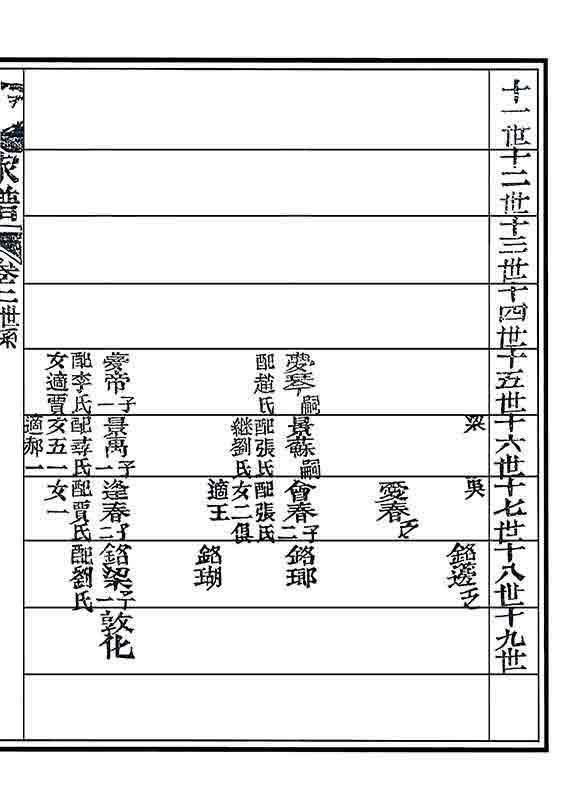 十一世
十二世
十三世
十四世
十五世
十六世
十七世
十八世
十九世
梁
吳
銘邊乏
愛春乏
夢琴嗣
配趙氏
景蘇嗣
配張氏
繼劉氏
會春子二
配張氏
女二俱
適王
銘瑯
銘瑚
夢帝子一
配李氏
女適賈
景萬子一
配尋氏
女五一
適郝一
逢春子二
配賈氏
女一
銘梁子一
配劉氏
敦化
家譜
卷二世系